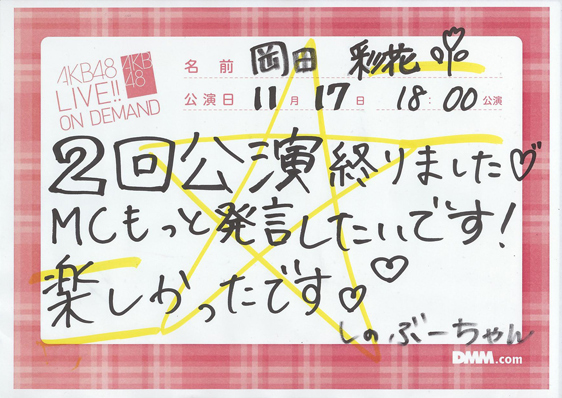 AKB48
LIVE!!
ON DEMAND
AKB
48
名前 岡田 彩花
公演日 11月 17日 18:00公演
2回公演終りました♡
MCもっと発言したいです!
楽しかったです♡♡
しのぶーちゃん
DMM.com